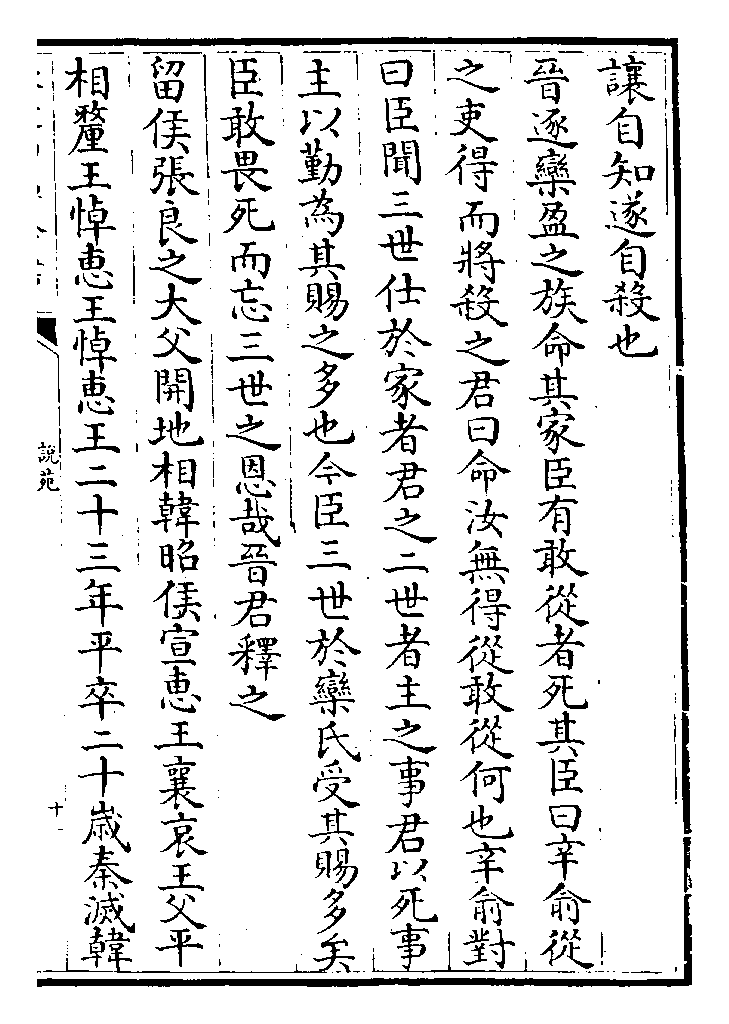 讓自知遂自殺也
晉逐欒盈之族命其家臣有敢從者死其臣曰辛俞從
之吏得而將殺之君曰命汝無得從敢從何也辛俞對
曰臣聞三世仕於家者君之二世者主之事君以死事
主以勤為其賜之多也今臣三世於欒氏受其賜多矣
臣敢畏死而忘三世之恩哉晉君釋之
留侯張良之大父開地相韓昭侯宣惠王襄哀王父平
相釐王悼惠王悼惠王二十三年平卒二十歲秦滅韓
說苑
十